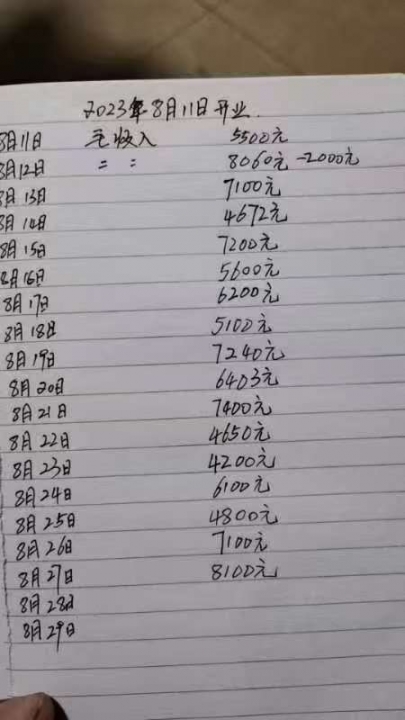 2023年8月11日开业.
8月11日 毛收入 5500元
8月12日 〃 〃 8060元 -2000元
8月13日 7100元
8月14日 4672元
8月15日 7200元
8月16日 5600元
8月17日 6200元
8月18日 5100元
8月19日 7240元
8月20日 6403元
8月21日 7400元
8月22日 4650元
8月23日 4200元
8月24日 6100元
8月25日 4800元
8月26日 7100元
8月27日 8100元
8月28日
8月29日